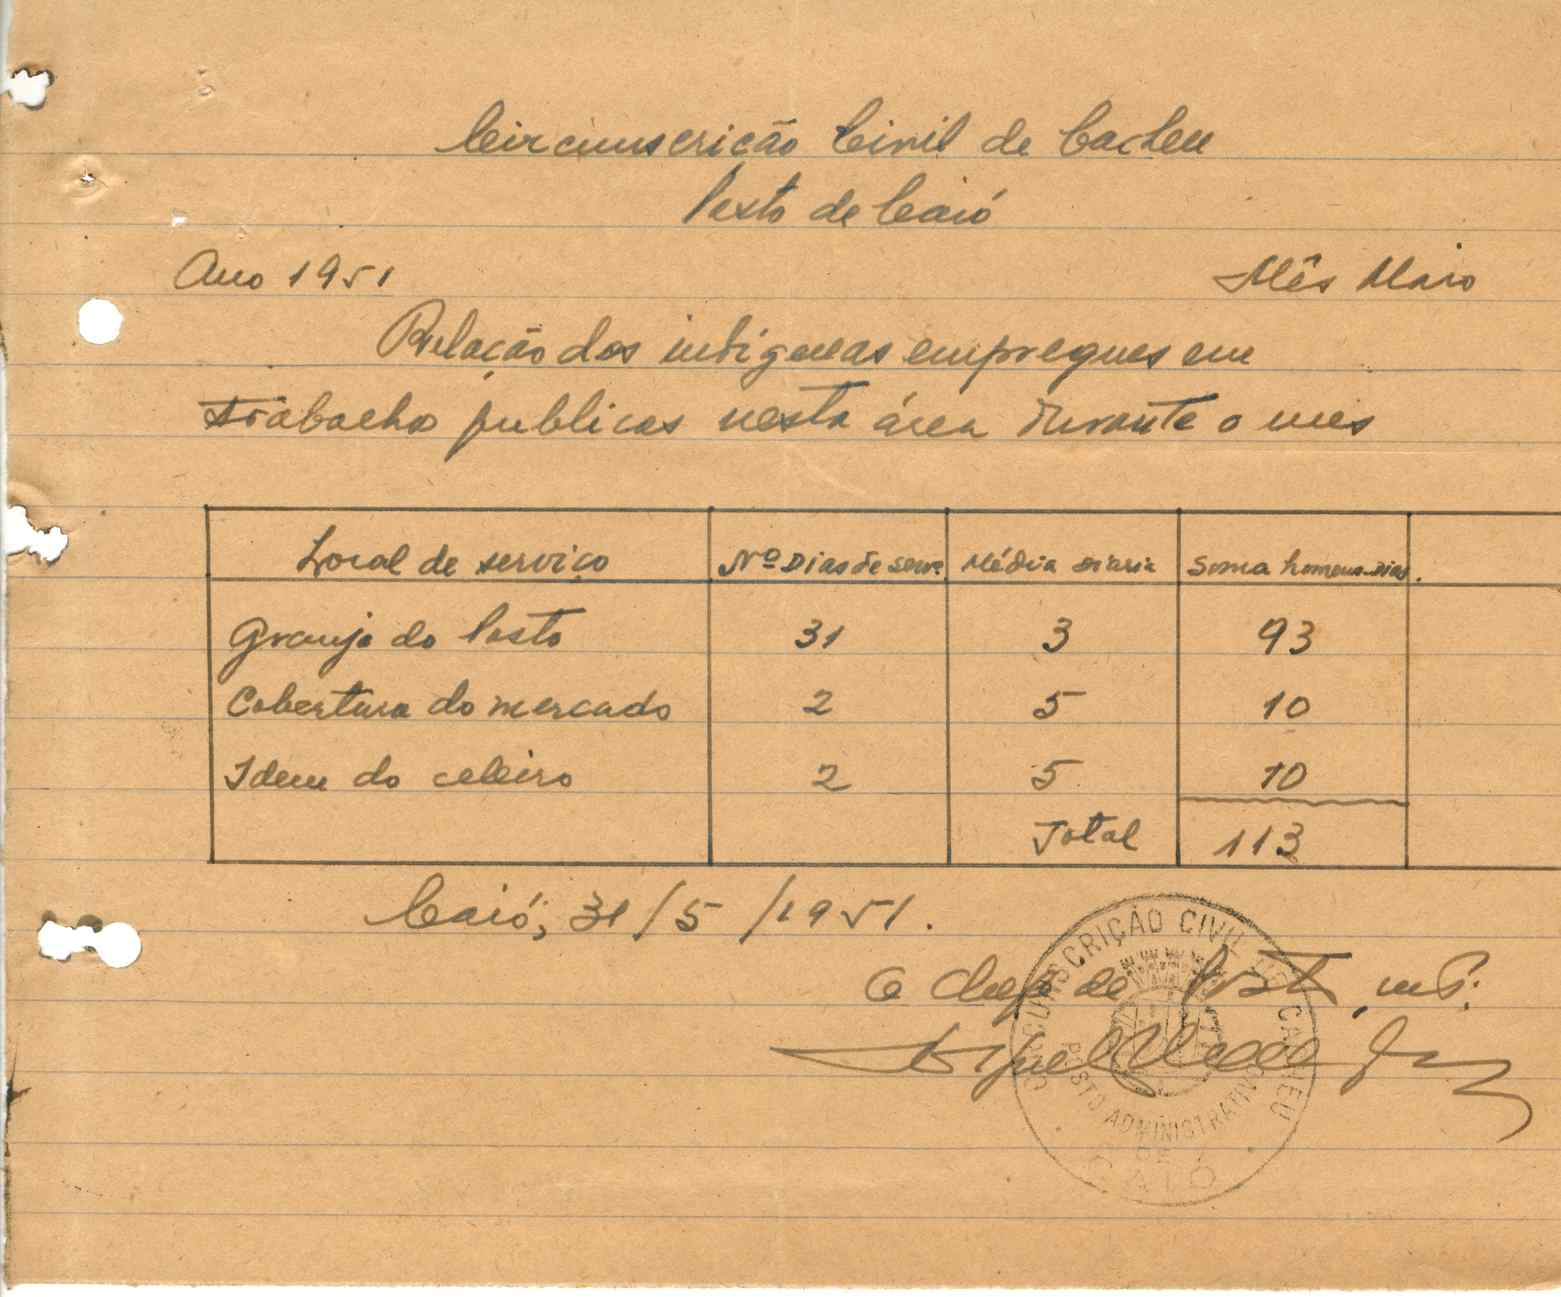 Circunscrição Civil de Cacheu
Posto de Caió
Ano 1951 Mês Maio
Relação dos indígenas empregues em
trabalho publicos nesta área durante o mes
Local de serviço Nº Dias de serv. Média diaria Soma homens-dias.
Granja do Posto 31 3 93
Cobertura do mercado 2 5 10
Idem do celeiro 2 5 10
Total 113
Caió, 31/5/1951.
O Chefe de Posto,
CIRCUNSCRIÇÃO CIVIL DE CACHEU
POSTO ADMINISTRATIVO
DE
CAIÓ